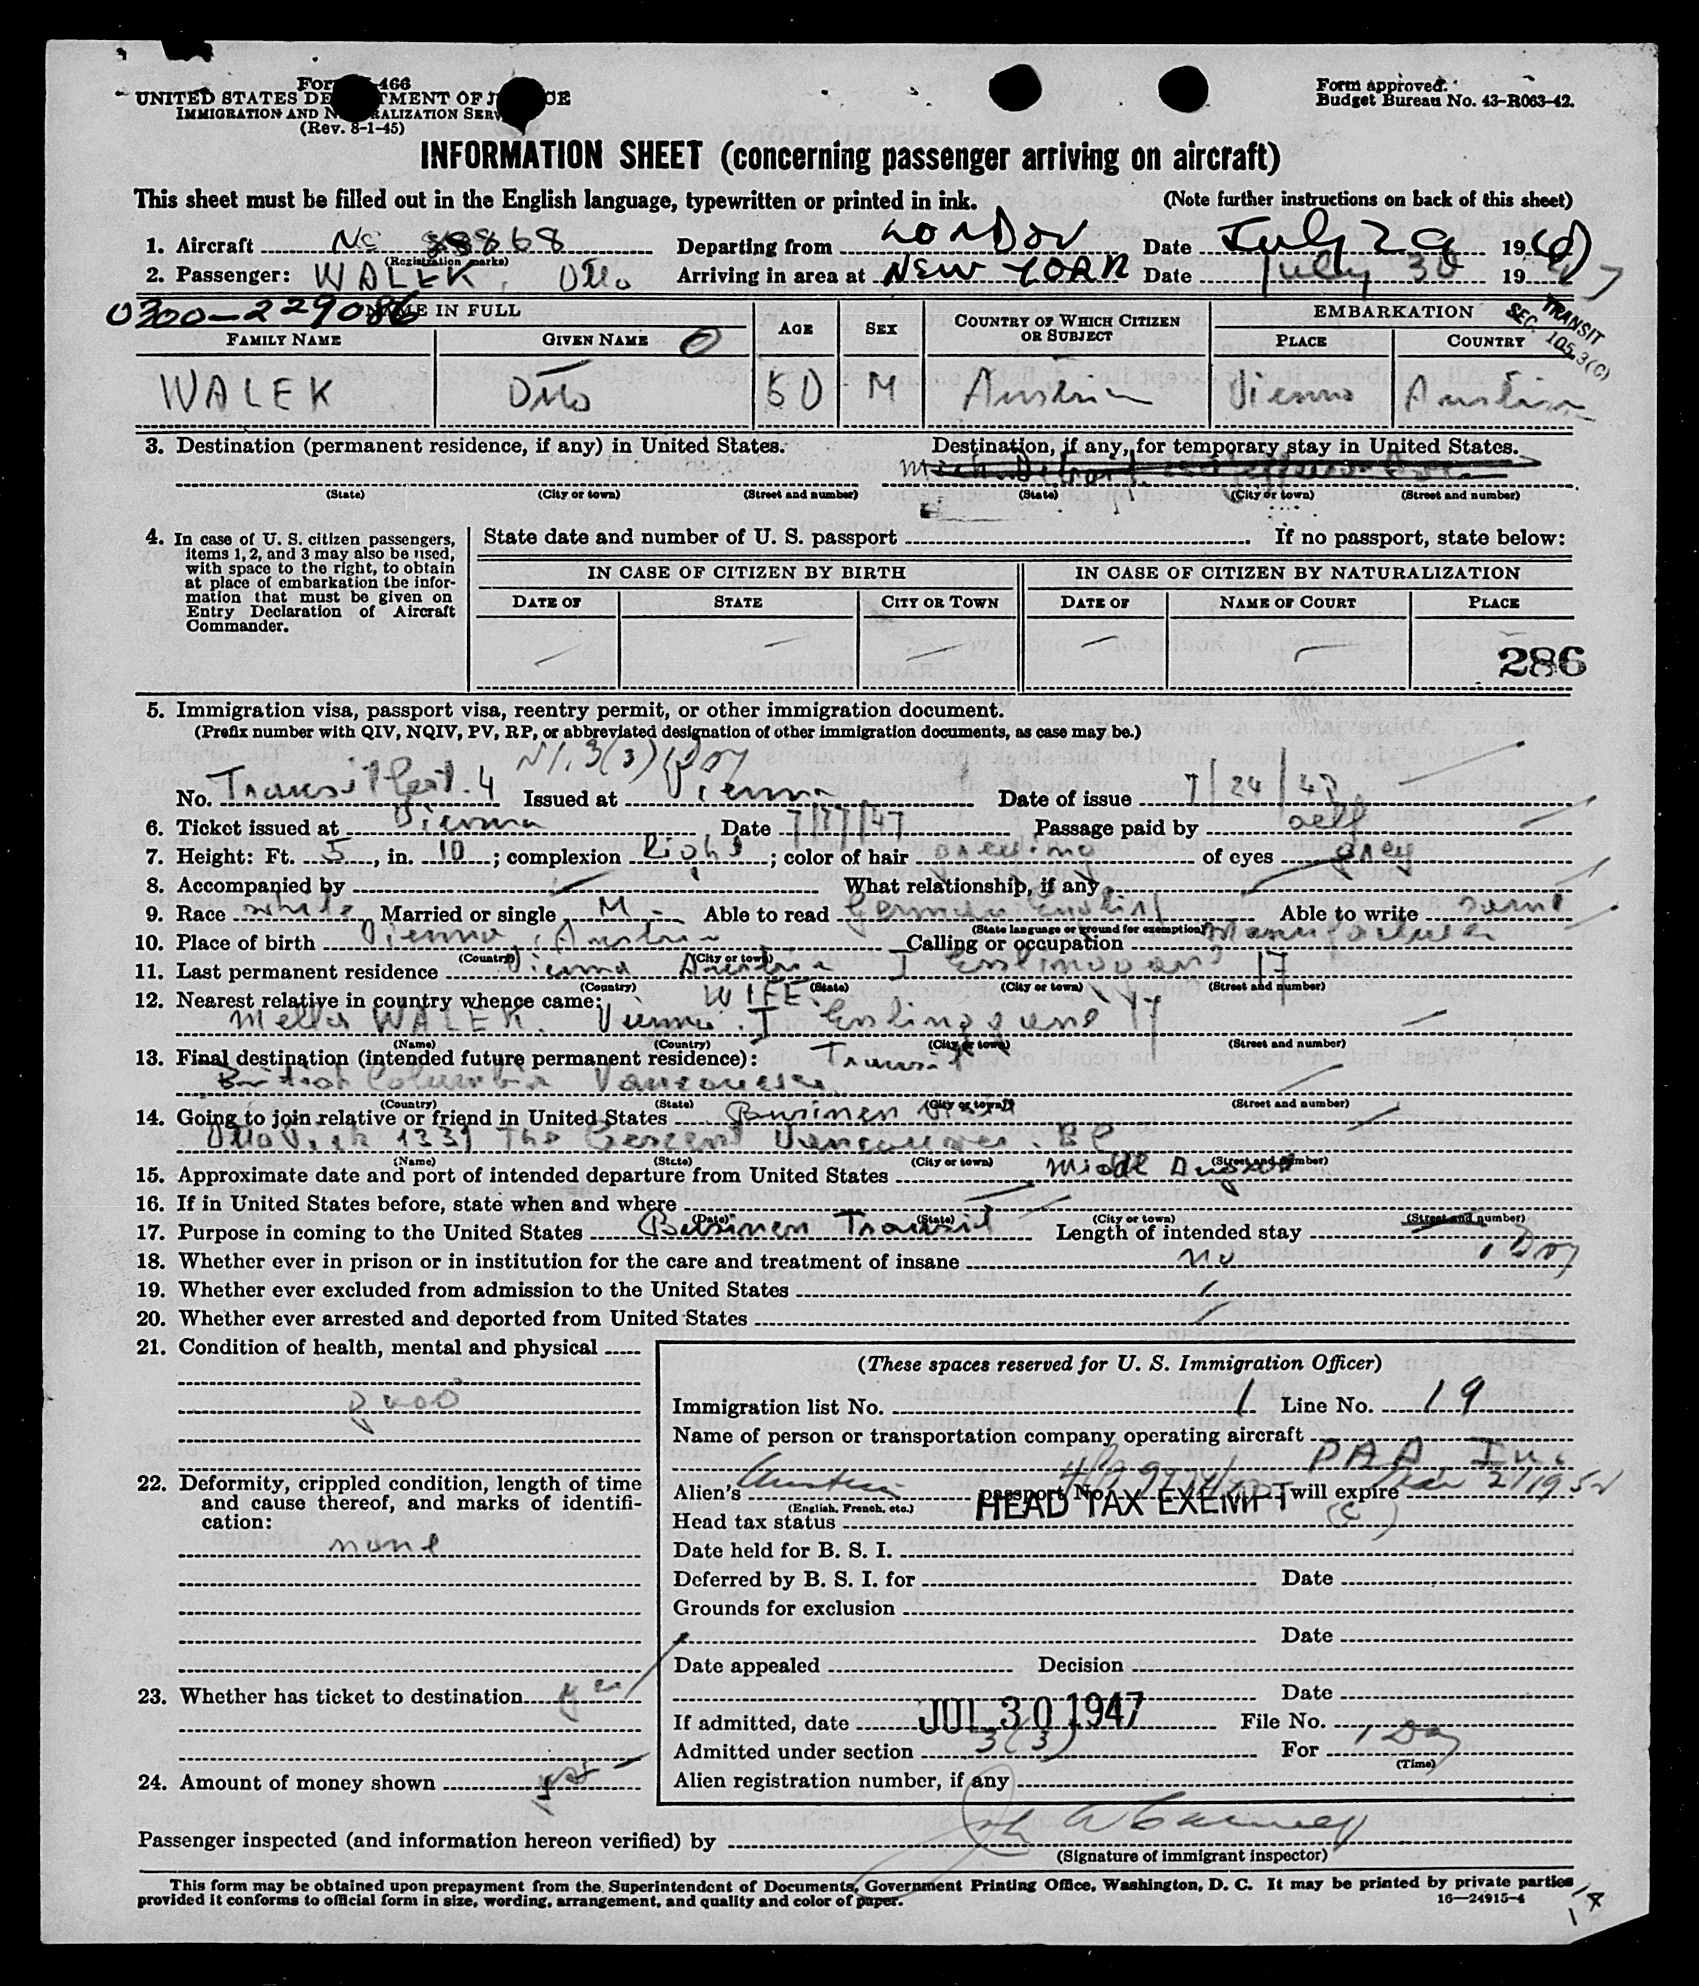 Form 466
UNITED STATES DE TMENT OF J CE
IMMIGRATION AND N RALIZATION SERV
(Rev. 8-1-45)
Form approved.
Budget Bureau No. 43-R063-42.
INFORMATION SHEET (concerning passenger arriving on aircraft)
This sheet must be filled out in the English language, typewritten or printed in ink. (Note further instructions on back of this sheet)
1. Aircraft NC 88868 Departing from LONDON Date July 29 19
(Registration marks)
2. Passenger: WALEK, Otto Arriving in area at NEW YORK Date July 30 1947
0300-229086
NAME IN FULL AGE SEX COUNTRY OF WHICH CITIZEN OR SUBJECT EMBARKATION
TRANSIT
SEC. 105.3(c)
FAMILY NAME GIVEN NAME PLACE COUNTRY
WALEK Otto 50 M Austria Vienna Austria
3. Destination (permanent residence, if any) in United States. Destination, if any, for temporary stay in United States.
(State) (City or town) (Street and number) (State) (City or town) (Street and number)
4. In case of U. S. citizen passengers,
items 1, 2, and 3 may also be used,
with space to the right, to obtain
at place of embarkation the infor-
mation that must be given on
Entry Declaration of Aircraft
Commander.
State date and number of U. S. passport If no passport, state below:
IN CASE OF CITIZEN BY BIRTH IN CASE OF CITIZEN BY NATURALIZATION
DATE OF STATE CITY OR TOWN DATE OF NAME OF COURT PLACE
286
5. Immigration visa, passport visa, reentry permit, or other immigration document.
(Prefix number with QIV, NQIV, PV, RP, or abbreviated designation of other immigration documents, as case may be.)
3(3) 1 Day
No. Transit Cert. 4 Issued at Vienna Date of issue 7/24/47
6. Ticket issued at Vienna Date 7/17/47 Passage paid by self
7. Height: Ft. 5, in. 10; complexion light; color of hair greying of eyes grey
8. Accompanied by What relationship, if any
9. Race white Married or single M Able to read German English Able to write same
(State language or ground for exemption)
10. Place of birth Vienna, Austria Calling or occupation Manufacturer
(Country) (City or town)
11. Last permanent residence Vienna Austria I Esslinggasse 17
(Country) (State) (City or town) (Street and number)
12. Nearest relative in country whence came: WIFE.
Mella WALEK. Vienna. I Esslinggasse 17
(Name) (Country) (City or town) (Street and number)
13. Final destination (intended future permanent residence): Transit
British Columbia Vancouver
(Country) (State) (City or town) (Street and number)
14. Going to join relative or friend in United States Business visit
Otto 1339 The Crescent Vancouver. BC
(Name) (State) (City or town) (Street and number)
15. Approximate date and port of intended departure from United States Middle August
16. If in United States before, state when and where
(Date) (State) (City or town) (Street and number)
17. Purpose in coming to the United States Business Transit Length of intended stay 1 Day
18. Whether ever in prison or in institution for the care and treatment of insane no
19. Whether ever excluded from admission to the United States
20. Whether ever arrested and deported from United States
21. Condition of health, mental and physical
good
22. Deformity, crippled condition, length of time
and cause thereof, and marks of identifi-
cation:
none
23. Whether has ticket to destination yes
24. Amount of money shown yes
(These spaces reserved for U. S. Immigration Officer)
Immigration list No. 1 Line No. 19
Name of person or transportation company operating aircraft
PAA Inc
Alien's Austrian passport No. will expire 1952
(English, French, etc.)
Head tax status HEAD TAX EXEMPT (c)
Date held for B. S. I.
Deferred by B. S. I. for Date
Grounds for exclusion
Date
Date appealed Decision
Date
If admitted, date JUL 30 1947 File No.
Admitted under section 3(3) For 1 Day
(Time)
Alien registration number, if any
Passenger inspected (and information hereon verified) by
(Signature of immigrant inspector)
This form may be obtained upon prepayment from the Superintendent of Documents, Government Printing Office, Washington, D. C. It may be printed by private parties
provided it conforms to official form in size, wording, arrangement, and quality and color of paper. 16—24915-4